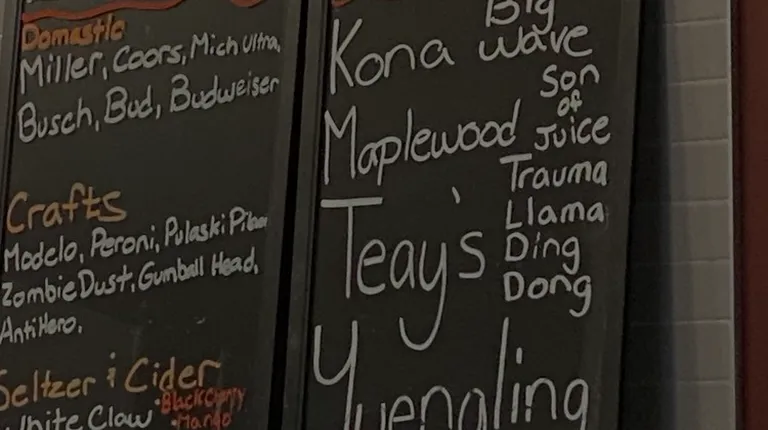 Domastic
Miller, Coors, Mich Ultra,
Busch, Bud, Budweiser
Crafts
Modelo, Peroni, Pulaski
Zombie Dust, Gumball Head,
Anti Hero.
Seltzer & Cider
White Claw • Black Cherry
• Mango
Big
Kona Wave
Son
of
Maplewood Juice
Trauma
Llama
Teay's Ding
Dong
Yuengling